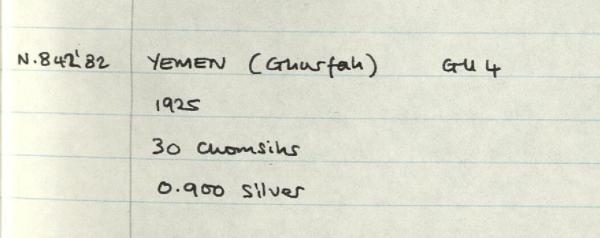 N.842'82 YEMEN (Ghurfah) GU 4
1925
30 Chomsihs
0.900 silver